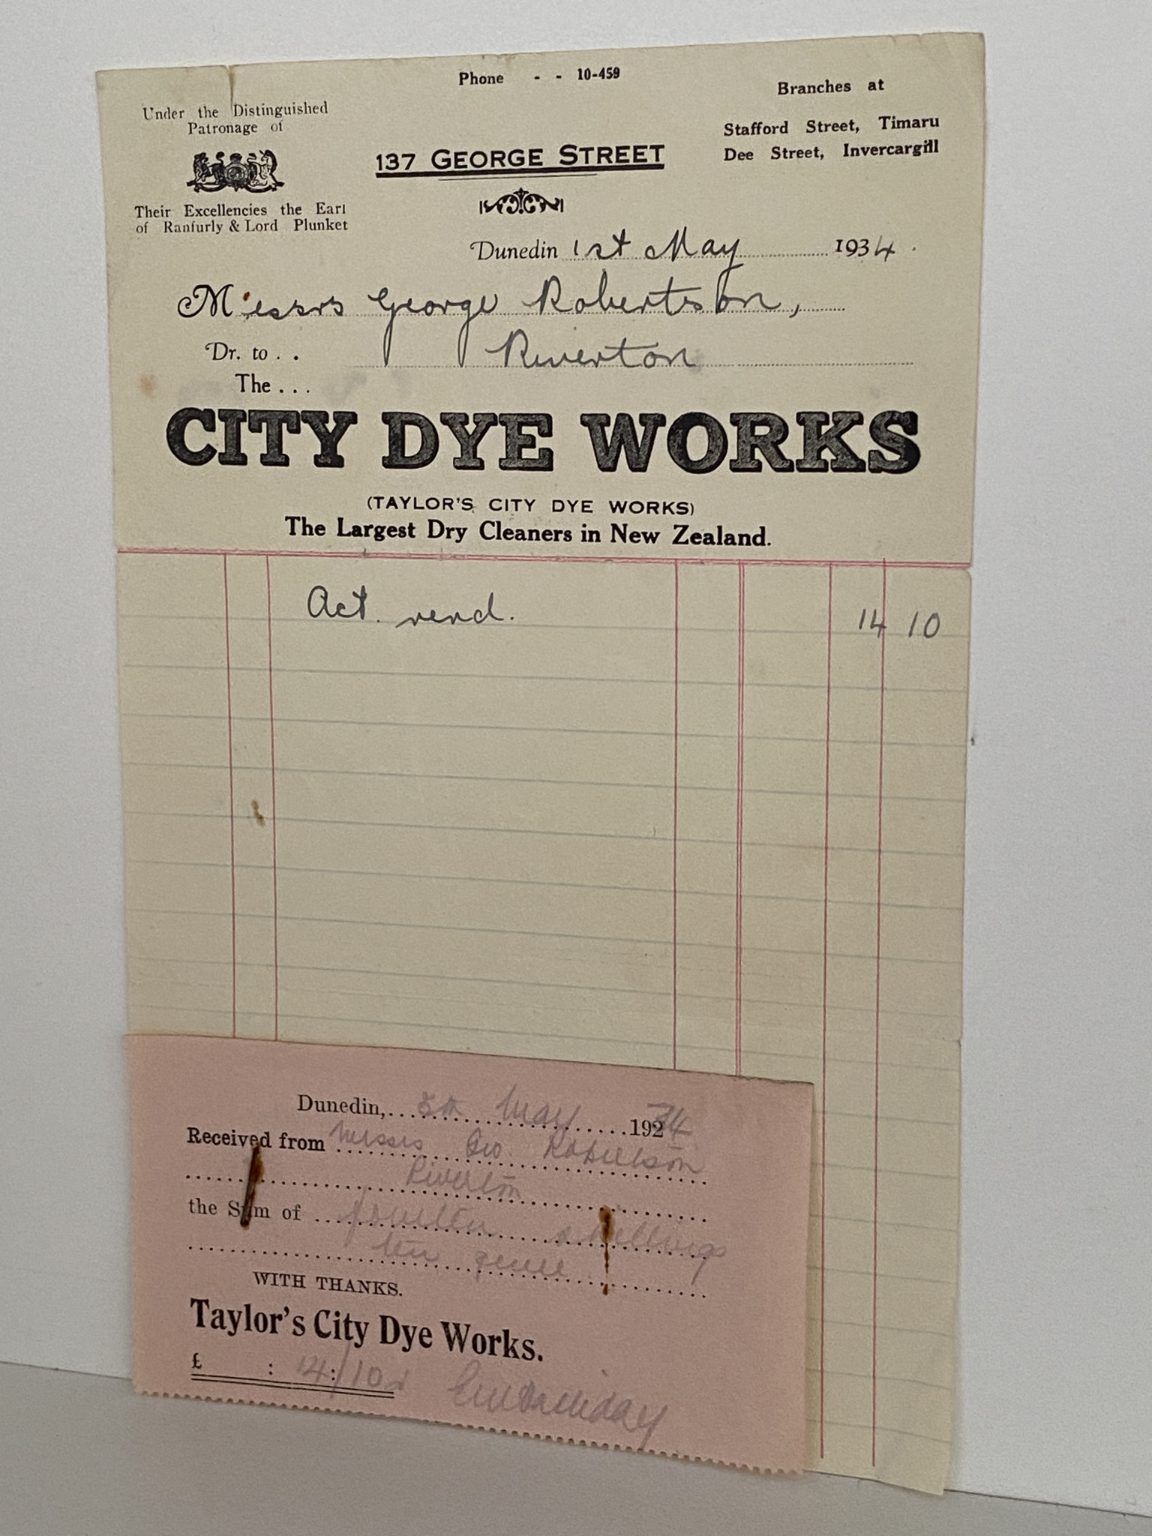 Phone - - 10-459
Under the Distinguished
Patronage of
Their Excellencies the Earl
of Ranfurly & Lord Plunket
137 GEORGE STREET
Branches at
Stafford Street, Timaru
Dee Street, Invercargill
Dunedin 1st May 1934
Messrs George Robertson,
Dr. to . . Riverton
The . . .
CITY DYE WORKS
(TAYLOR'S CITY DYE WORKS)
The Largest Dry Cleaners in New Zealand.
Act. rend. 14 10
Dunedin, 5th May 1934
Received from Messrs Geo. Robertson
Riverton
the Sum of fourteen shillings
ten pence
WITH THANKS.
Taylor's City Dye Works.
£ : 14/10